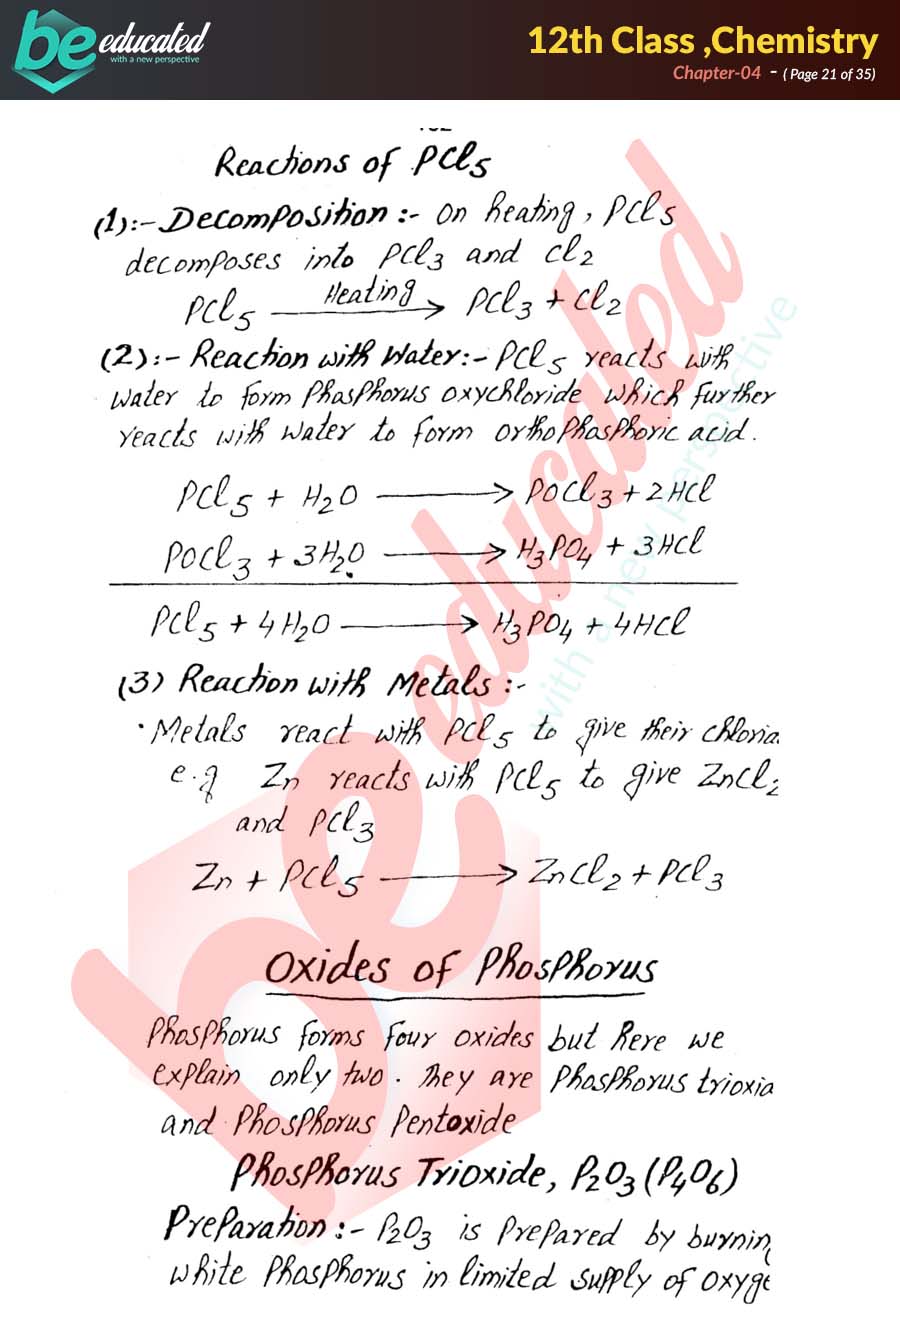 be educated
with a new perspective
12th Class ,Chemistry
Chapter-04 - ( Page 21 of 35)
Reactions of PCl5
(1):- Decomposition :- On heating, PCl5
decomposes into PCl3 and Cl2
PCl5 —Heating→ PCl3 + Cl2
(2):- Reaction with Water:- PCl5 reacts with
water to form Phosphorus oxychloride which further
reacts with water to form orthophosphoric acid.
PCl5 + H2O ⟶ POCl3 + 2HCl
POCl3 + 3H2O ⟶ H3PO4 + 3HCl
PCl5 + 4H2O ⟶ H3PO4 + 4HCl
(3) Reaction with Metals :-
· Metals react with PCl5 to give their
e.g Zn reacts with PCl5 to give ZnCl2
and PCl3
Zn + PCl5 ⟶ ZnCl2 + PCl3
Oxides of Phosphorus
Phosphorus forms four oxides but here we
explain only two. They are Phosphorus
and Phosphorus Pentoxide
Phosphorus Trioxide, P2O3 (P4O6)
Preparation :- P2O3 is prepared by
white Phosphorus in limited supply of
be educated
with a new perspective